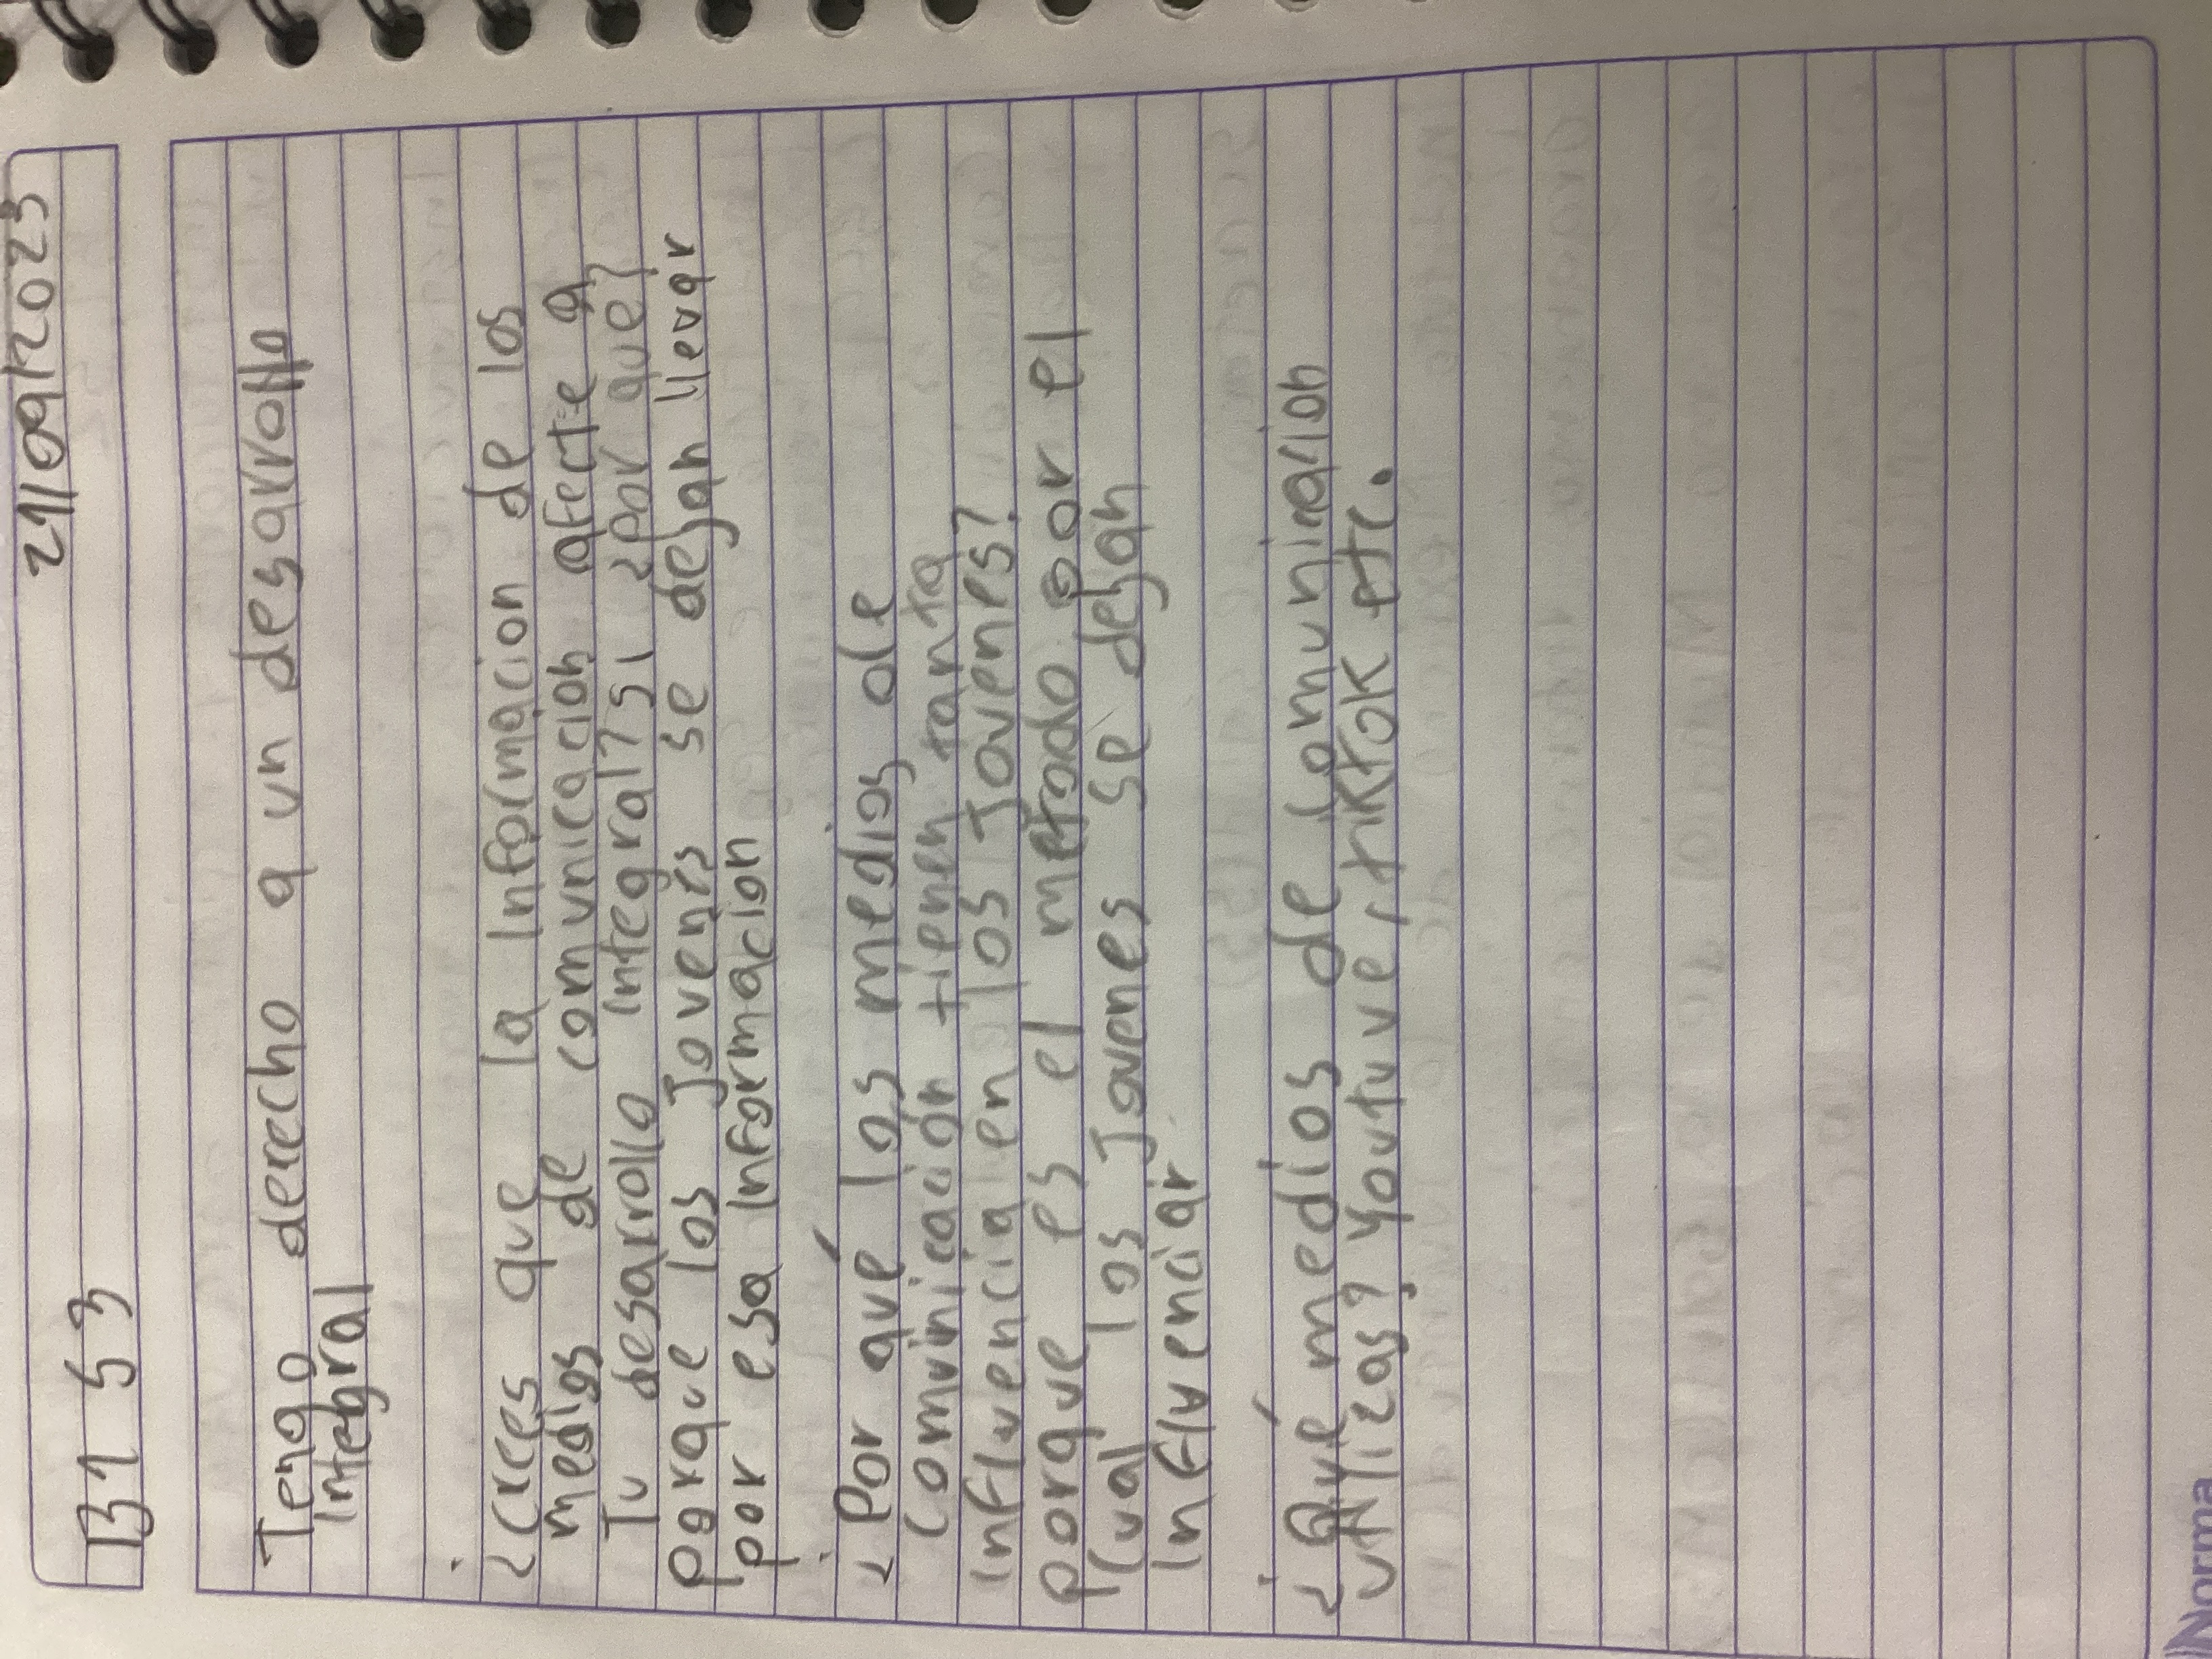 21/09/2023
B1 S3
Tengo derecho a un desarrollo
integral
¿Crees que la informacion de los
medios de comunicacion afecte a
Tu desarrollo integral? si ¿por que?
porque los Jovenes se dejan llevar
por esa informacion
¿Por qué los medios de
comuinicación tienen tanta
influencia en los Jovenes?
porque es el metodo por el
cual los Jovenes se dejan
influenciar
¿Qué medios de comunicacion
utilizas? Youtuve, tiktok etc.
Norma